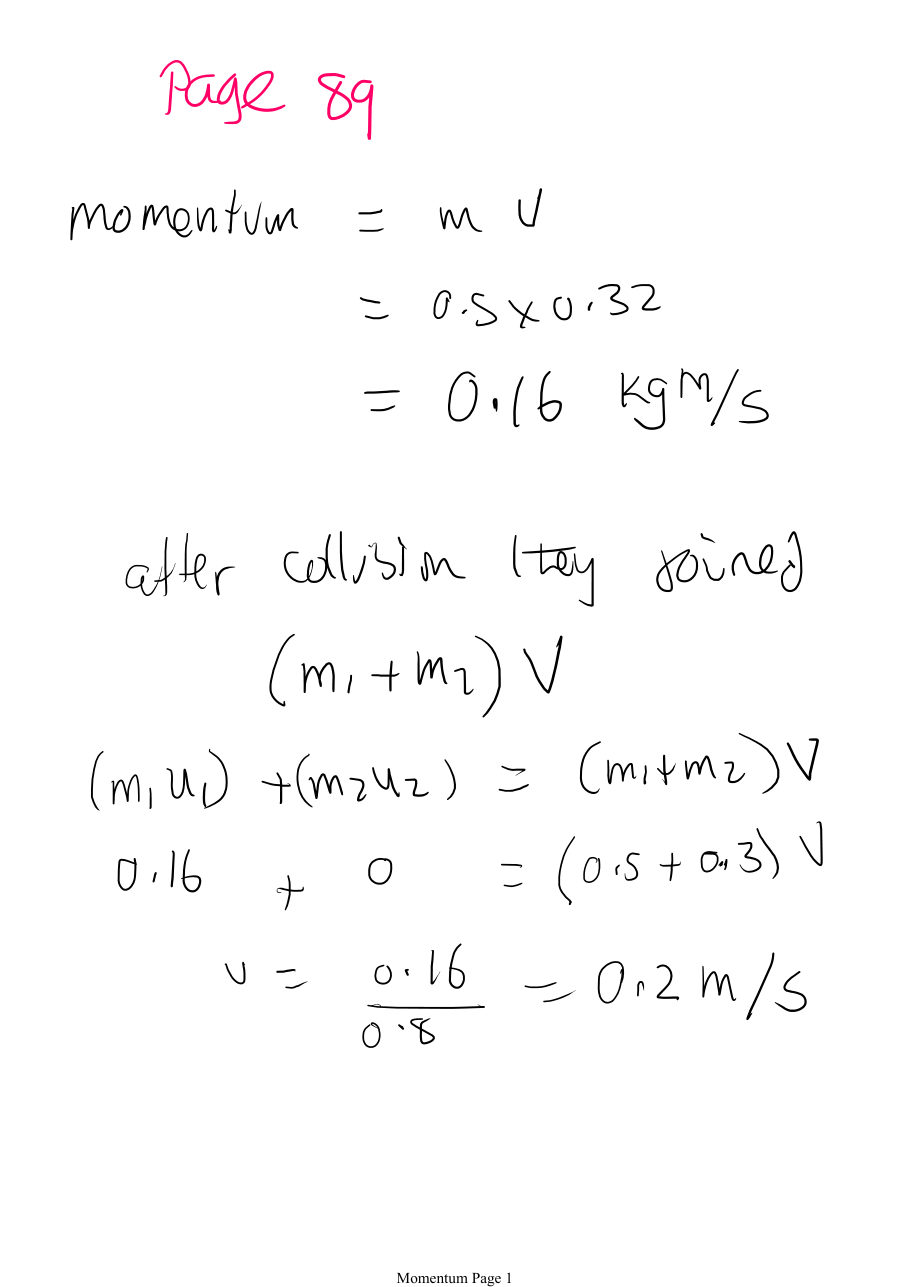 Page 89
momentum = m V
= 0.5 x 0.32
= 0.16 kgm/s
after collision they joined
(m1 + m2) V
(m1 u1) + (m2 u2) = (m1 + m2) V
0.16 + 0 = (0.5 + 0.3) V
v = 0.16 / 0.8 = 0.2 m/s
Momentum Page 1